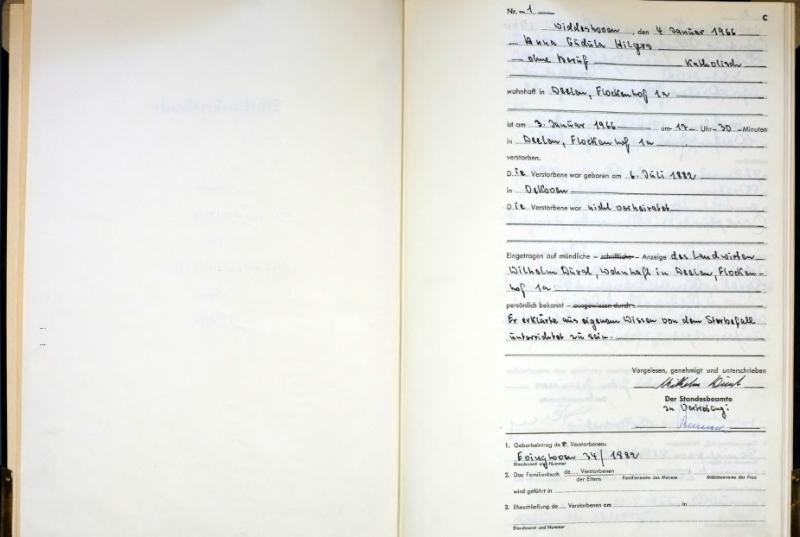 Nr. 1
C
Widdeshoven, den 4. Januar 1966
Anna Güdula Hilgers
ohne Beruf Katholisch
wohnhaft in Deelen, Flockenhof 1a
ist am 3. Januar 1966 um 17 Uhr 30 Minuten
in Deelen, Flockenhof 1a
verstorben.
Die Verstorbene war geboren am 6. Juli 1882
in Oekoven
Die Verstorbene war nicht verheiratet
Eingetragen auf mündliche – schriftliche – Anzeige des Landwirten
Wilhelm , wohnhaft in Deelen, Flocken-
hof 1a
persönlich bekannt – ausgewiesen durch
Er erklärte aus eigenem Wissen von dem Sterbefall
unterrichtet zu sein.
Vorgelesen, genehmigt und unterschrieben
Wilhelm
Der Standesbeamte
in Vertretung:
1. Geburtseintrag der Verstorbenen:
Evinghoven 34/1882
Standesamt und Nummer
2. Das Familienbuch de Verstorbenen
der Eltern Familienname des Mannes Mädchenname der Frau
wird geführt in
3. Eheschließung de Verstorbenen am in
Standesamt und Nummer